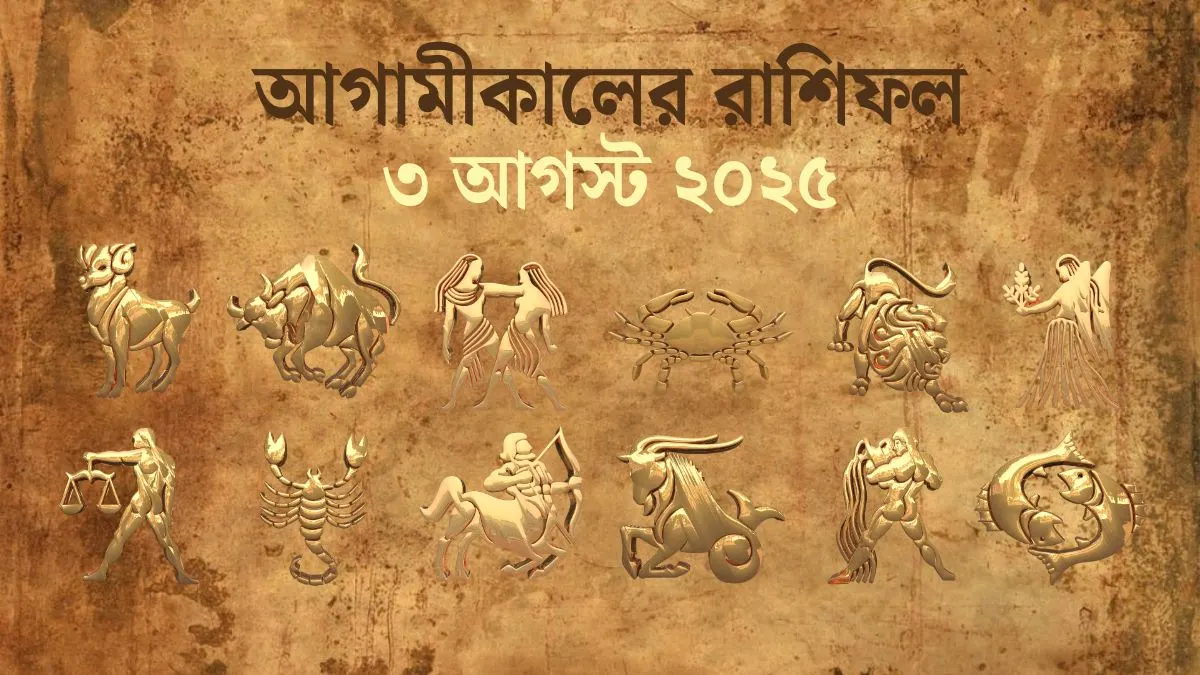 আগামীকালের রাশিফল
৩ আগস্ট ২০২৫